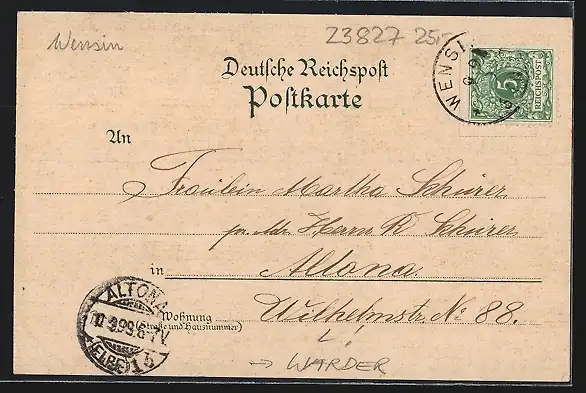 Wensin
23827 25,-
Deutsche Reichspost
Postkarte
WENSI
5
REICHSPOST
An
Fräulein Martha Schürer
pr. Adr. Herrn R Schürer
in Altona.
Wohnung
(Straße und Hausnummer)
Wilhelmstr. No: 88.
ALTONA
(ELBE) 1b
→ WARDER